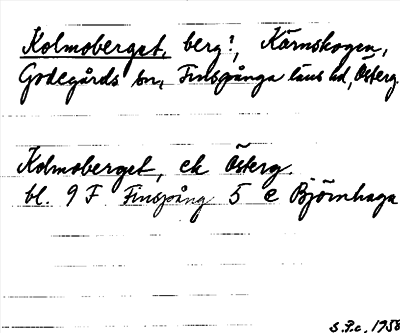 Kolmoberget, berg?, Kärnskogen,
Godegårds sn, Finspånga läns hd, Österg.
Kolmoberget, ek Österg.
bl. 9 F Finspång 5 e Björnhaga
S.P.c. 1958